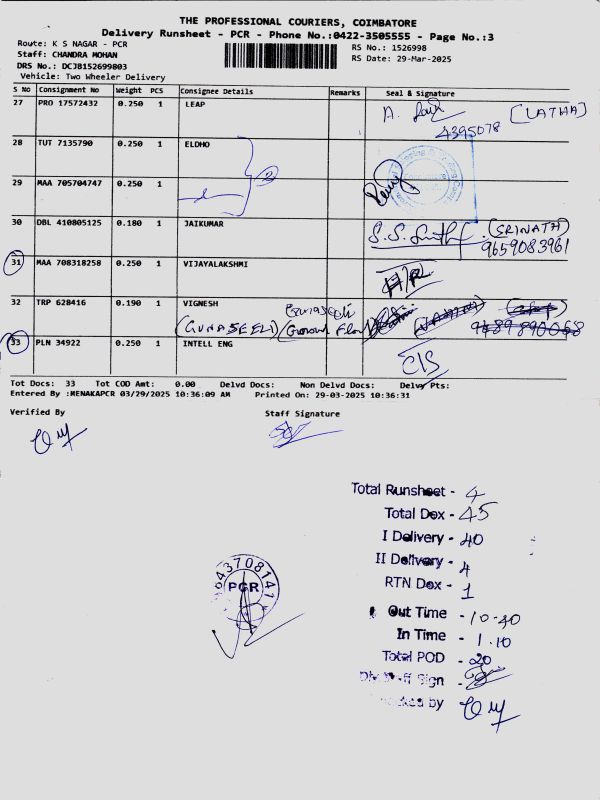 THE PROFESSIONAL COURIERS, COIMBATORE
Delivery Runsheet - PCR - Phone No.:0422-3505555 - Page No.:3
Route: K S NAGAR - PCR
RS No.: 1526998
Staff: CHANDRA MOHAN
RS Date: 29-Mar-2025
DRS No.: DCJB152699803
Vehicle: Two Wheeler Delivery
S No Consignment No Weight PCS Consignee Details Remarks Seal & Signature
27 PRO 17572432 0.250 1 LEAP (LATHA)
4395078
28 TUT 7135790 0.250 1 ELDHO
29 MAA 705704747 0.250 1
30 DBL 410805125 0.180 1 JAIKUMAR (SRINATH)
9659083961
31 MAA 708318258 0.250 1 VIJAYALAKSHMI
32 TRP 628416 0.190 1 VIGNESH
(GUNASEELI)
33 PLN 34922 0.250 1 INTELL ENG
C/S
Tot Docs: 33 Tot COD Amt: 0.00 Delvd Docs: Non Delvd Docs: Delvy Pts:
Entered By :MENAKAPCR 03/29/2025 10:36:09 AM Printed On: 29-03-2025 10:36:31
Verified By Staff Signature
Total Runsheet - 4
Total Dox - 45
I Delivery - 40
II Delivery - 4
RTN Dox - 1
Out Time - 10-40
In Time - 1.10
Total POD - 20
Sign
by
PCR